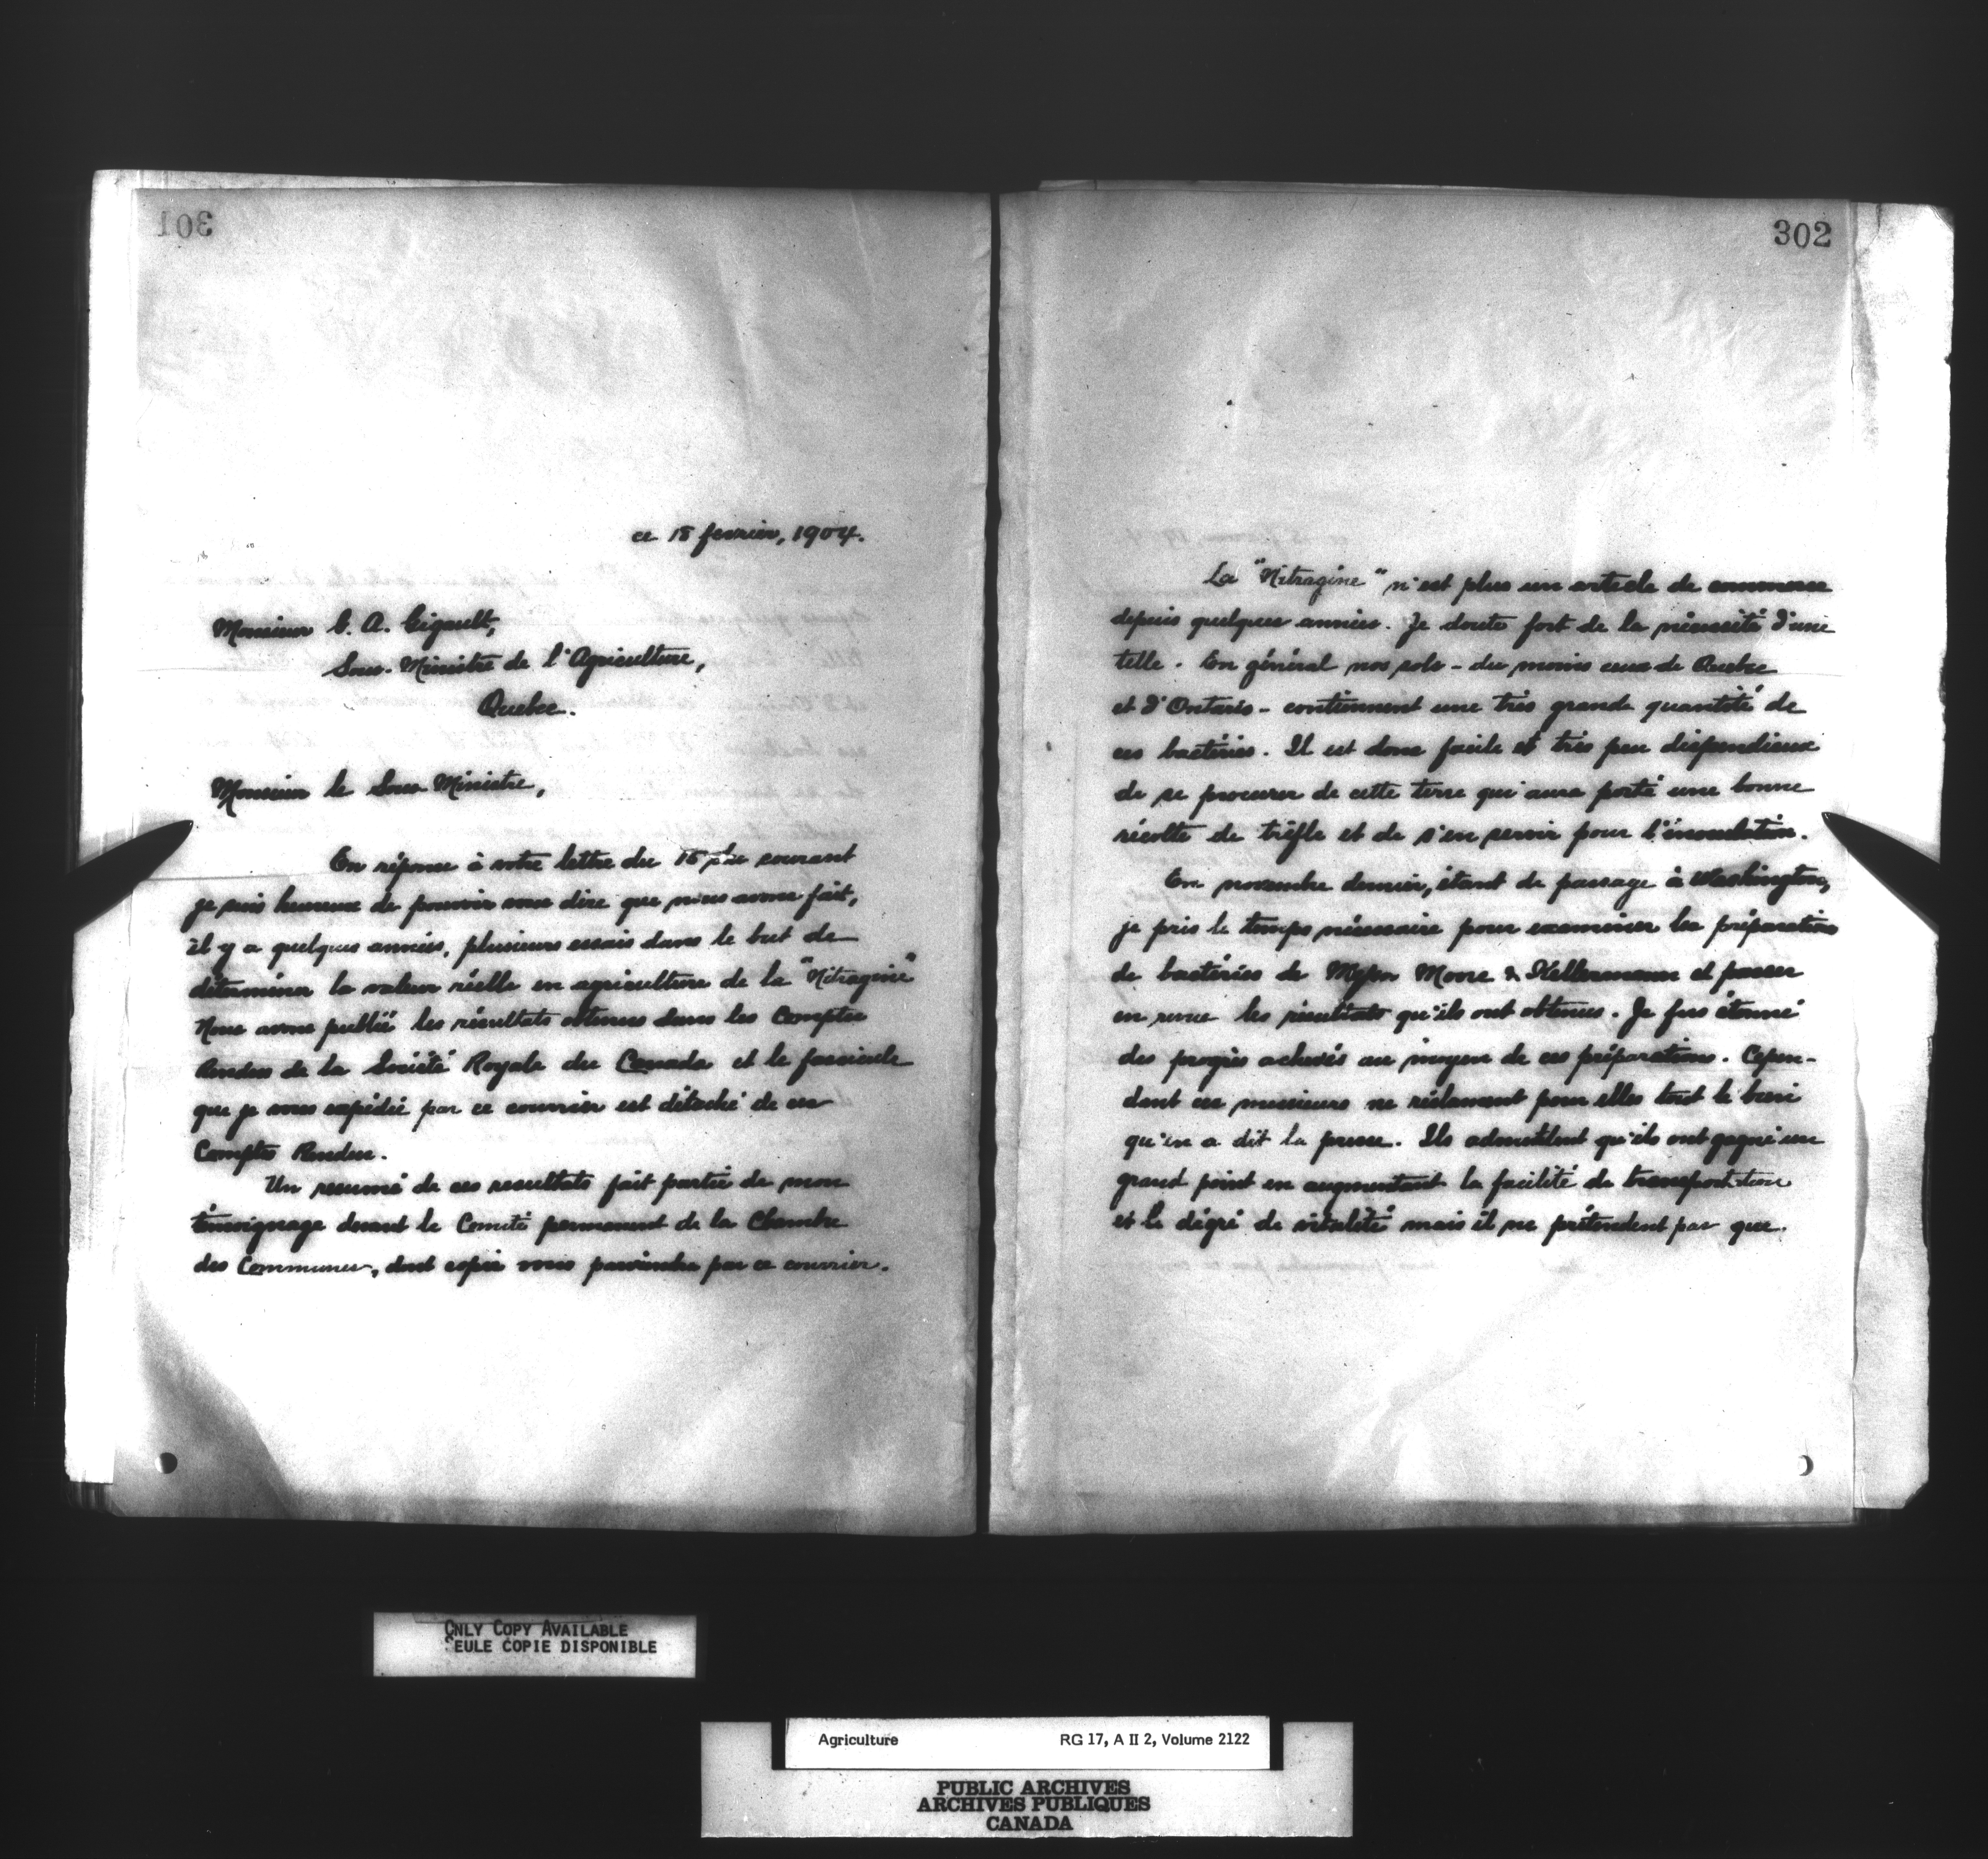 301
ce 18 fevrier, 1904.
Monsieur G. A. Gigault,
Sous-Ministre de l'Agriculture,
Quebec.
Monsieur le Sous-Ministre,
En réponse à votre lettre du 15 du courant
je suis heureux de pouvoir vous dire que nous avons fait,
il y a quelques années, plusieurs essais dans le but de
déterminer la valeur réelle en agriculture de la "Nitragine"
Nous avons publié les résultats obtenus dans les Comptes
Rendus de la Société Royale du Canada et le fascicule
que je vous expédie par ce courrier est détaché de ces
Comptes Rendus.
Un resumé de ces resultats fait partie de mon
témoignage devant le Comité permanent de la Chambre
des Communes, dont copie vous parviendra par ce courrier.
302
La "Nitragine" n'est plus un article de commerce
depuis quelques années. Je doute fort de la nécessité d'une
telle. En général nos sols - du moins ceux de Quebec
et d'Ontario - contiennent une très grande quantité de
ces bactéries. Il est donc facile et très peu dispendieux
de se procurer de cette terre qui aura porté une bonne
récolte de trèfle et de s'en servir pour l'inoculation.
En novembre dernier, étant de passage à Washington,
je pris le temps nécessaire pour examiner les préparations
de bactéries de Messrs Moore & Kellermann et passer
en revue les résultats qu'ils ont obtenus. Je fus étonné
des progrès achevés au moyen de ces préparations. Cepen-
dant ces messieurs ne réclament pour elles tout le bien
qu'en a dit la presse. Ils admettent qu'ils ont gagné un
grand point en augmentant la facilité de transportation
et le dégré de vitalité mais il ne prétendent pas que
ONLY COPY AVAILABLE
SEULE COPIE DISPONIBLE
Agriculture RG 17, A II 2, Volume 2122
PUBLIC ARCHIVES
ARCHIVES PUBLIQUES
CANADA